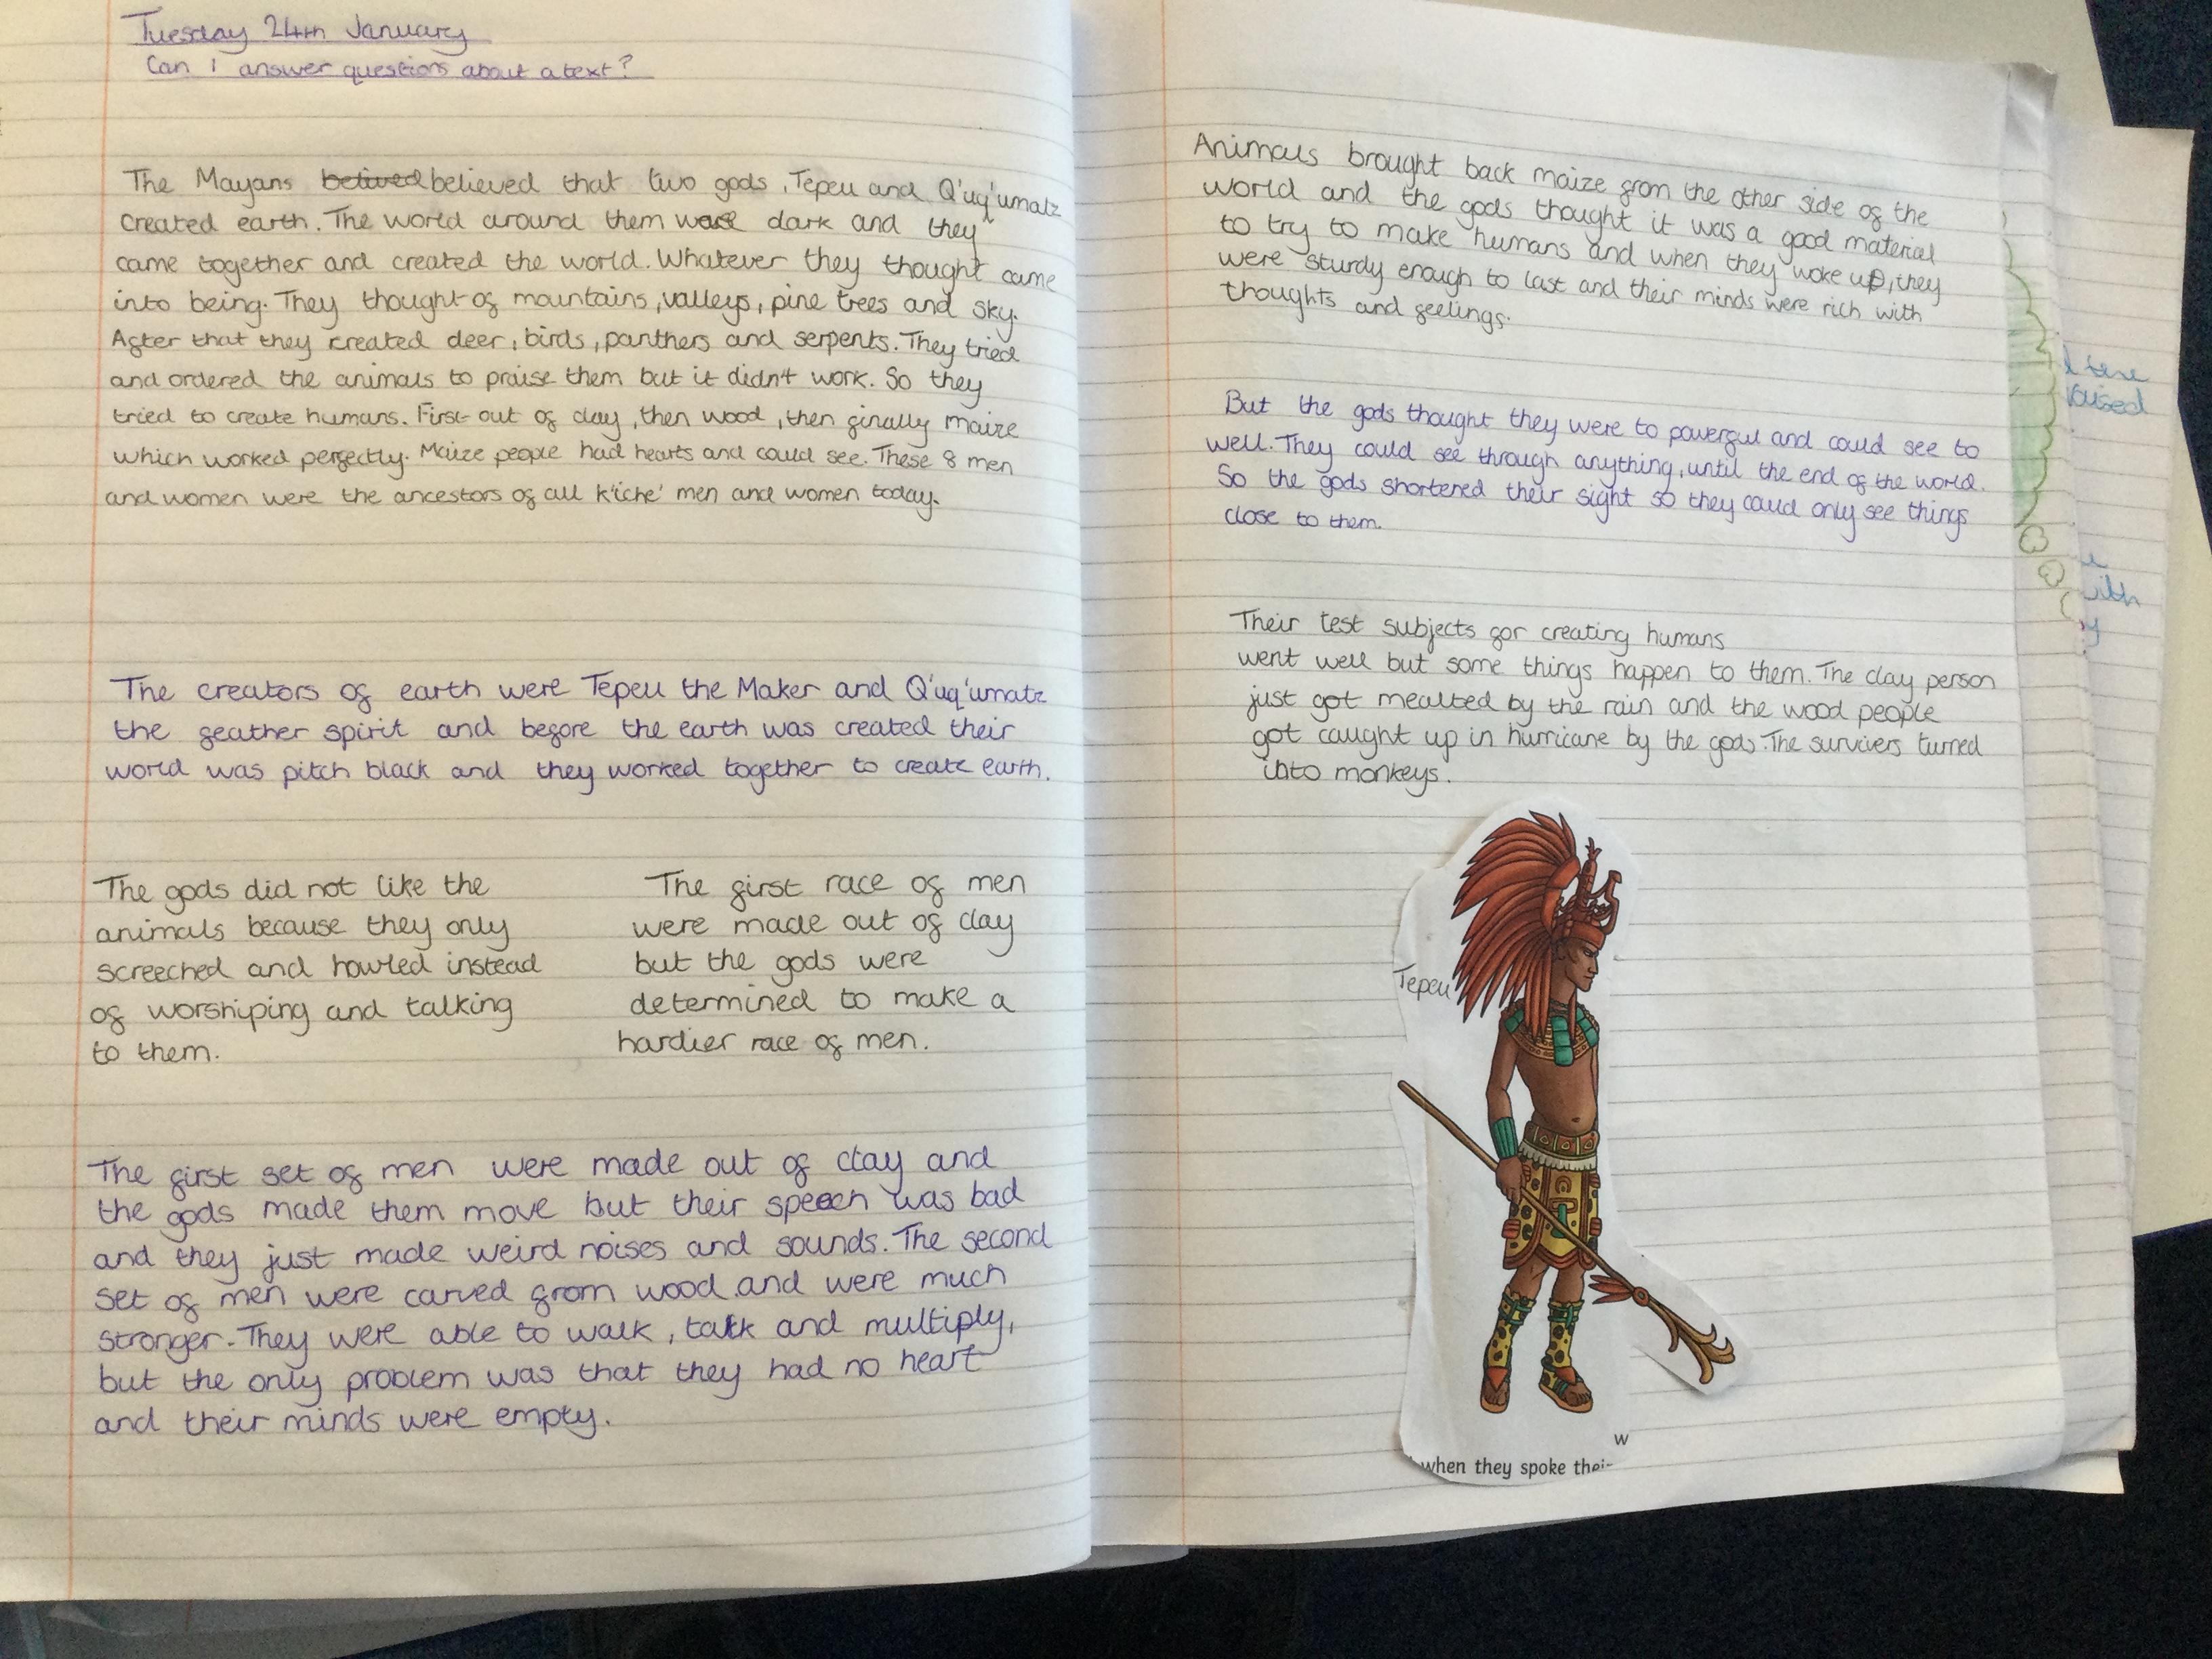 Tuesday 24th January
Can I answer questions about a text?
The Mayans belived believed that two gods, Tepeu and Q'uq'umatz
created earth. The world around them was dark and they
came together and created the world. Whatever they thought came
into being. They thought of mountains, valleys, pine trees and sky.
After that they created deer, birds, panthers and serpents. They tried
and ordered the animals to praise them but it didn't work. So they
tried to create humans. First out of clay, then wood, then finally maize
which worked perfectly. Maize people had hearts and could see. These 8 men
and women were the ancestors of all k'iche' men and women today.
The creators of earth were Tepeu the Maker and Q'uq'umatz
the feather spirit and before the earth was created their
world was pitch black and they worked together to create earth.
The gods did not like the
animals because they only
screeched and howled instead
of worshiping and talking
to them.
The first race of men
were made out of clay
but the gods were
determined to make a
hardier race of men.
The first set of men were made out of clay and
the gods made them move but their speech was bad
and they just made weird noises and sounds. The second
set of men were carved from wood and were much
stronger. They were able to walk, talk and multiply,
but the only problem was that they had no heart
and their minds were empty.
Animals brought back maize from the other side of the
world and the gods thought it was a good material
to try to make humans and when they woke up, they
were sturdy enough to last and their minds were rich with
thoughts and feelings.
But the gods thought they were to powerful and could see to
well. They could see through anything, until the end of the world.
So the gods shortened their sight so they could only see things
close to them.
Their test subjects for creating humans
went well but some things happen to them. The clay person
just got mealted by the rain and the wood people
got caught up in hurricane by the gods. The survivers turned
into monkeys.
Tepeu
w
when they spoke their
with
y